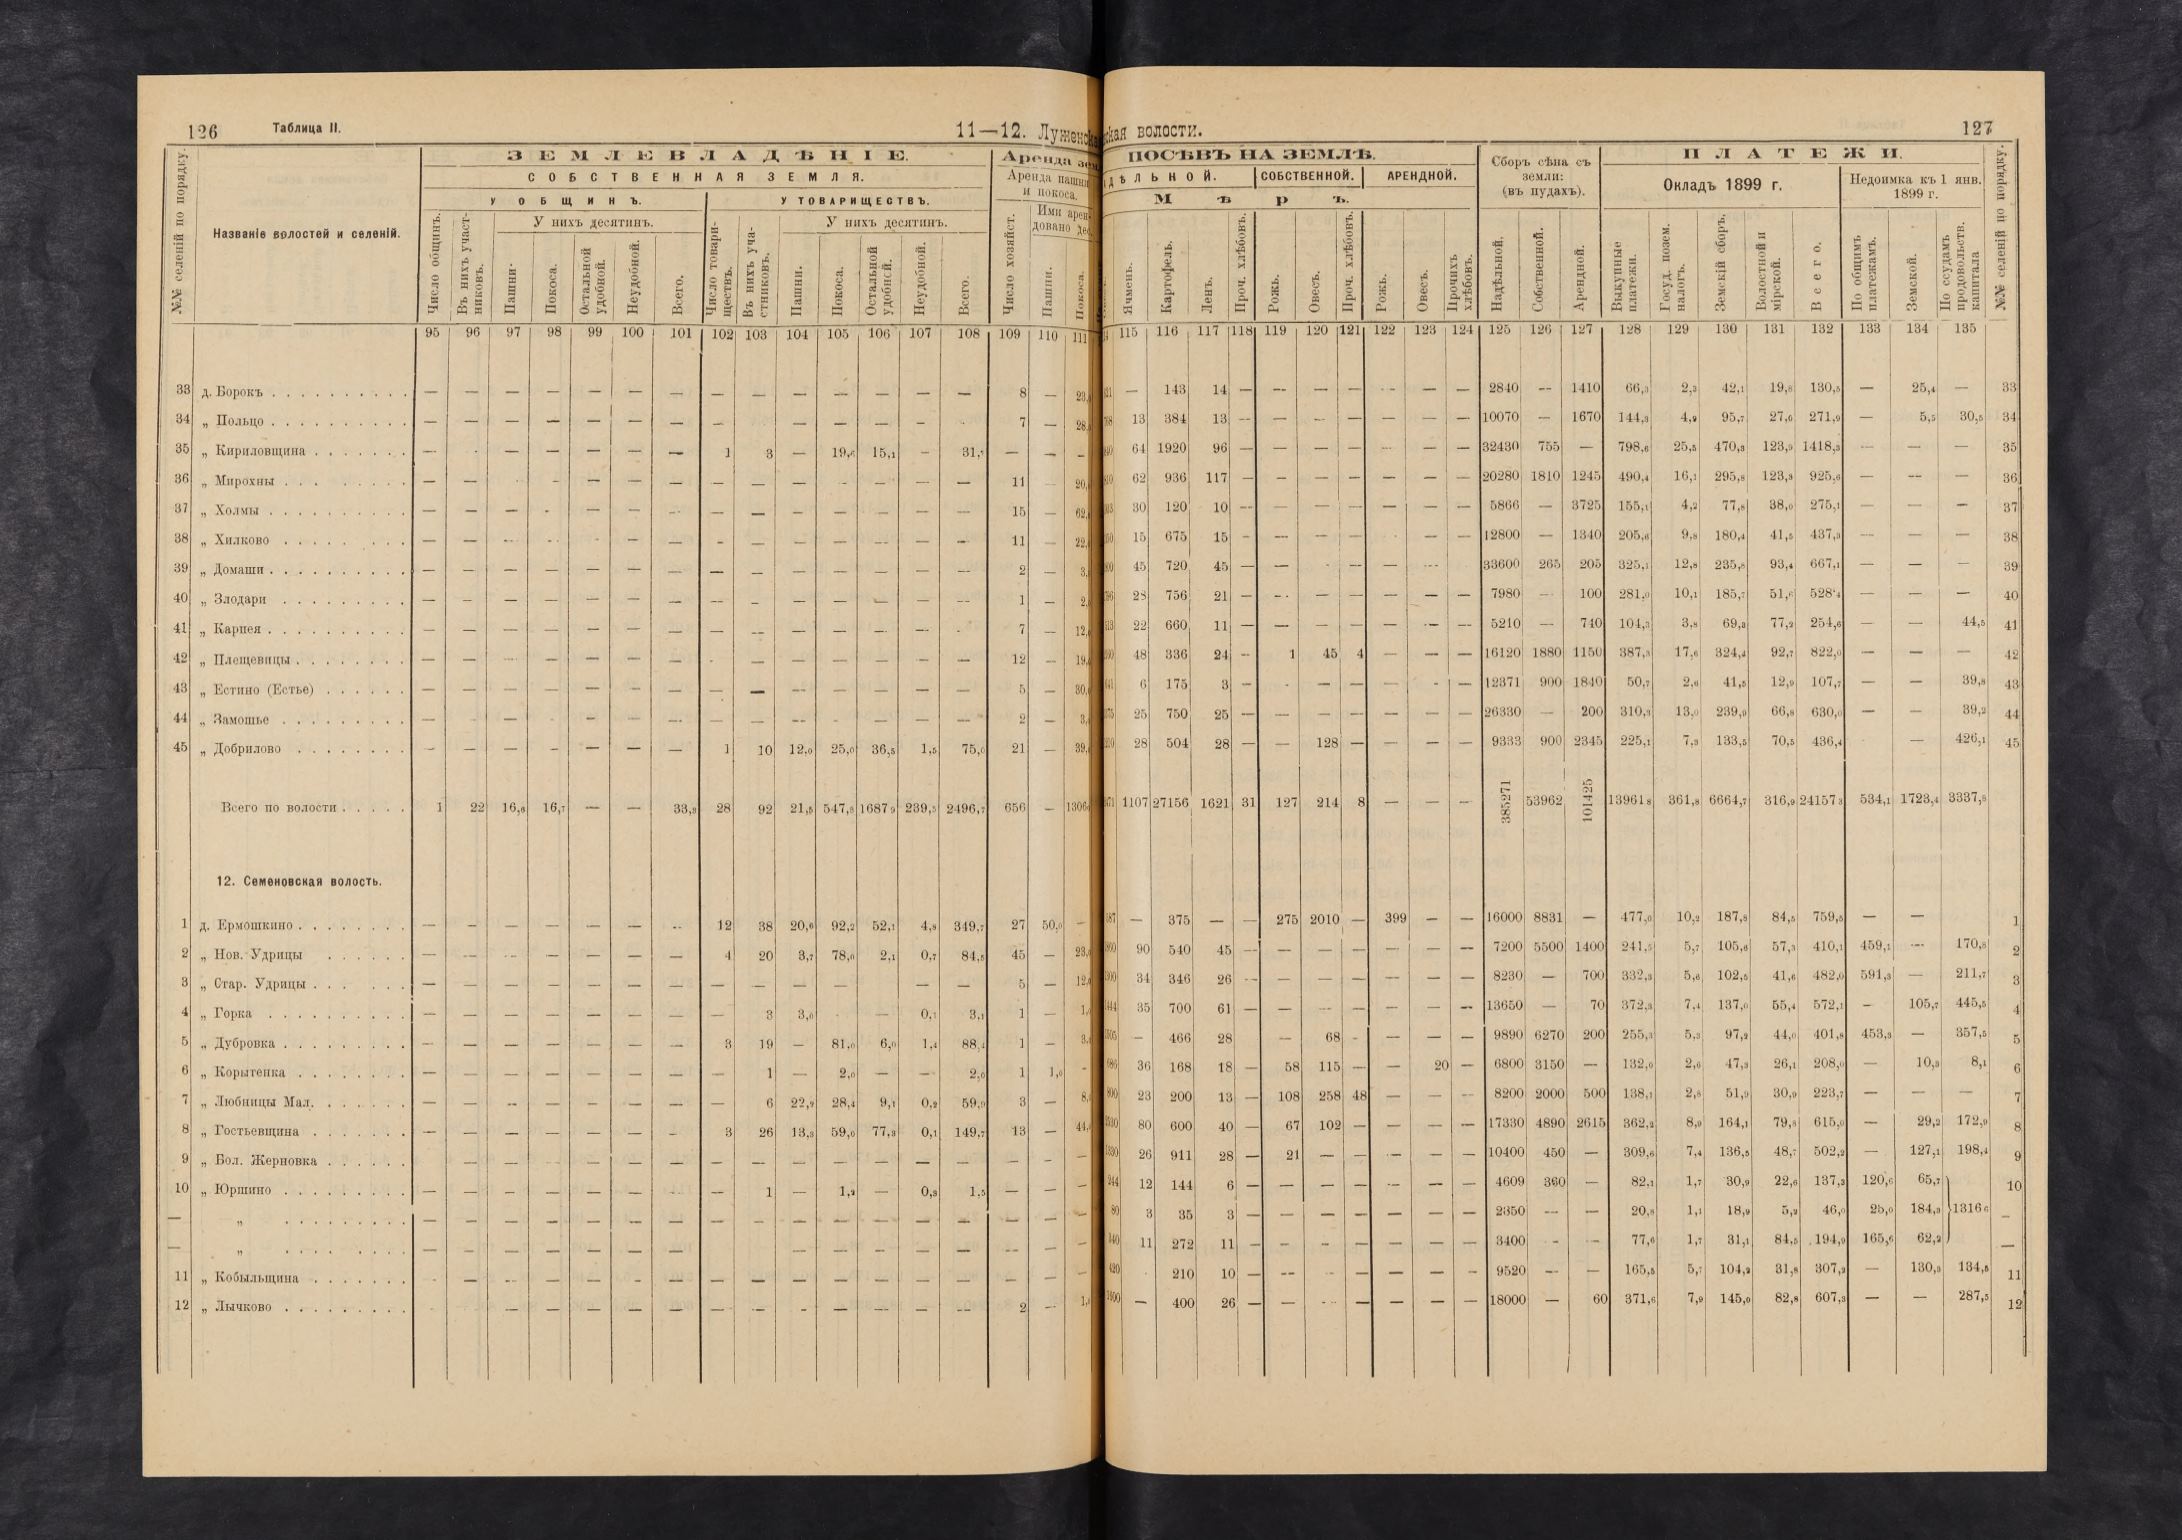 126 Таблица II. 11—12. Луженская волости. 127
ЗЕМЛЕВЛАДѢНІЕ. Аренда ПОСѢВЪ НА ЗЕМЛѢ. ПЛАТЕЖИ.
СОБСТВЕННАЯ ЗЕМЛЯ. Аренда пашни и покоса. СОБСТВЕННОЙ. АРЕНДНОЙ. Сборъ сѣна съ земли: (въ пудахъ). Окладъ 1899 г. Недоимка къ 1 янв. 1899 г.
У ОБЩИНЪ. У ТОВАРИЩЕСТВЪ. Мѣръ.
У нихъ десятинъ. У нихъ десятинъ.
№№ селеній по порядку. Названіе волостей и селеній. Число общинъ. Въ нихъ участниковъ. Пашни. Покоса. Остальной удобной. Неудобной. Всего. Число товариществъ. Въ нихъ участниковъ. Пашни. Покоса. Остальной удобной. Неудобной. Всего. Число хозяйст. Пашни. Покоса. Ячмень. Картофель. Ленъ. Проч. хлѣбовъ. Рожь. Овесъ. Проч. хлѣбовъ. Рожь. Овесъ. Прочихъ хлѣбовъ. Надѣльной. Собственной. Арендной. Выкупные платежи. Госуд. позем. налогъ. Земскій сборъ. Волостной и мірской. Всего. По общимъ платежамъ. Земской. По ссудамъ продовольств. капитала №№ селеній по порядку.
95 96 97 98 99 100 101 102 103 104 105 106 107 108 109 110 111 115 116 117 118 119 120 121 122 123 124 125 126 127 128 129 130 131 132 133 134 135
33 д. Борокъ — — — — — — — — — — — — — — 8 — — 143 14 — — — — — — — 2840 — 1410 66,3 2,3 42,1 19,8 130,5 — 25,4 — 33
34 „ Польцо — — — — — — — — — — — — — 7 — 13 384 13 — — — — — — — 10070 — 1670 144,3 4,9 95,7 27,0 271,9 — 5,5 30,5 34
35 „ Кириловщина — — — — — — 1 3 — 19,6 15,1 — 31,7 — — — 64 1920 96 — — — — — — — 32430 755 — 798,6 25,5 470,3 123,9 1418,3 — — — 35
36 „ Мирохны — — — — — — — — — — — — — 11 — 62 936 117 — — — — — — — 20280 1810 1245 490,4 16,1 295,8 123,3 925,6 — — — 36
37 „ Холмы — — — — — — — — — — — — — 15 — 30 120 10 — — — — — — — 5866 — 3725 155,1 4,2 77,8 38,0 275,1 — — — 37
38 „ Хилково — — — — — — — — — — — 11 — 15 675 15 — — — — — — — 12800 — 1340 205,6 9,8 180,4 41,5 437,3 — — — 38
39 „ Домаши — — — — — — — — — — — — — — 2 — 45 720 45 — — — — — — — 33600 265 205 325,1 12,8 235,8 93,4 667,1 — — — 39
40 „ Злодари — — — — — — — — — — — — — 1 — 28 756 21 — — — — — — — 7980 — 100 281,0 10,1 185,7 51,6 528,4 — — — 40
41 „ Карпея — — — — — — — — — — — — — 7 — 22 660 11 — — — — — — — 5210 — 740 104,3 3,8 69,3 77,2 254,6 — — 44,5 41
42 „ Плещевицы — — — — — — — — — — — — — 12 — 48 336 24 — 1 45 4 — — — 16120 1880 1150 387,3 17,6 324,4 92,7 822,0 — — — 42
43 „ Естино (Естье) — — — — — — — — — — — — — 5 — 6 175 3 — — — — — — — 12371 900 1840 50,7 2,6 41,5 12,9 107,7 — — 39,8 43
44 „ Замошье — — — — — — — — — — — — — 2 — 25 750 25 — — — — — — — 26330 — 200 310,3 13,0 239,9 66,8 630,0 — — 39,2 44
45 „ Добрилово — — — — — — — 1 10 12,0 25,0 36,5 1,5 75,0 21 — 28 504 28 — — 128 — — — — 9333 900 2345 225,1 7,3 133,5 70,5 436,4 — 426,1 45
Всего по волости 1 22 16,6 16,7 — — 33,3 28 92 21,5 547,8 1687,9 239,5 2496,7 656 — 1306 1107 27156 1621 31 127 214 8 — — — 385271 53962 101425 13961,8 361,8 6664,7 316,9 24157,3 534,1 1723,4 3337,8
12. Семеновская волость.
1 д. Ермошкино — — — — — — 12 38 20,6 92,2 52,1 4,8 349,7 27 50,0 — — 375 — — 275 2010 — 399 — — 16000 8831 — 477,0 10,2 187,8 84,5 759,5 — — 1
2 „ Нов. Удрицы — — — — — — — 4 20 3,7 78,0 2,1 0,7 84,5 45 — 90 540 45 — — — — — — — 7200 5500 1400 241,5 5,7 105,6 57,3 410,1 459,1 — 170,8 2
3 „ Стар. Удрицы — — — — — — — — — — — — — 5 — 34 346 26 — — — — — — — 8230 — 700 332,3 5,6 102,5 41,6 482,0 591,3 — 211,7 3
4 „ Горка — — — — — — — — 3 3,0 — 0,1 3,1 1 — 35 700 61 — — — — — — — 13650 — 70 372,3 7,4 137,0 55,4 572,1 — 105,7 445,5 4
5 „ Дубровка — — — — — — — 3 19 — 81,0 6,0 1,4 88,4 1 — — 466 28 — 68 — — — — 9890 6270 200 255,3 5,3 97,2 44,0 401,8 453,3 — 357,5 5
6 „ Корытенка — — — — — — — — 1 — 2,0 — — 2,0 1 1,0 — 36 168 18 — 58 115 — — 20 — 6800 3150 — 132,0 2,6 47,3 26,1 208,0 — 10,3 8,1 6
7 „ Любницы Мал. — — — — — — — — 6 22,2 28,4 9,1 0,2 59,9 3 — 23 200 13 — 108 258 48 — — — 8200 2000 500 138,1 2,8 51,9 30,9 223,7 — — — 7
8 „ Гостьевщина — — — — — — — 3 26 13,3 59,0 77,3 0,1 149,7 13 — 80 600 40 — 67 102 — — — — 17330 4890 2615 362,2 8,9 164,1 79,8 615,0 — 29,2 172,9 8
9 „ Бол. Жерновка — — — — — — — — — — — — — — — — 26 911 28 — 21 — — — — — 10400 450 — 309,6 7,4 136,5 48,7 502,2 — 127,1 198,4 9
10 „ Юршино — — — — — — — — 1 — 1,2 — 0,3 1,5 — — — 12 144 6 — — — — — — — 4609 360 — 82,1 1,7 30,9 22,6 137,3 120,6 65,7 10
— „ — — — — — — — — — — — — — — — — — 3 35 3 — — — — — — — 2350 — — 20,8 1,1 18,9 5,2 46,0 184,3 1316,6 —
— „ — — — — — — — — — — — — — — — — 11 272 11 — — — — — — — 3400 — — 77,6 1,7 31,1 84,5 194,9 165,6 62,2 —
11 „ Кобыльщина — — — — — — — — — — — — — — — — 210 10 — — — — — — — 9520 — — 165,5 5,7 104,2 31,8 307,2 — 130,3 134,5 11
12 „ Лычково — — — — — — — — — — — — — 2 — — 400 26 — — — — — — — 18000 — 60 371,6 7,9 145,0 82,8 607,3 — — 287,5 12